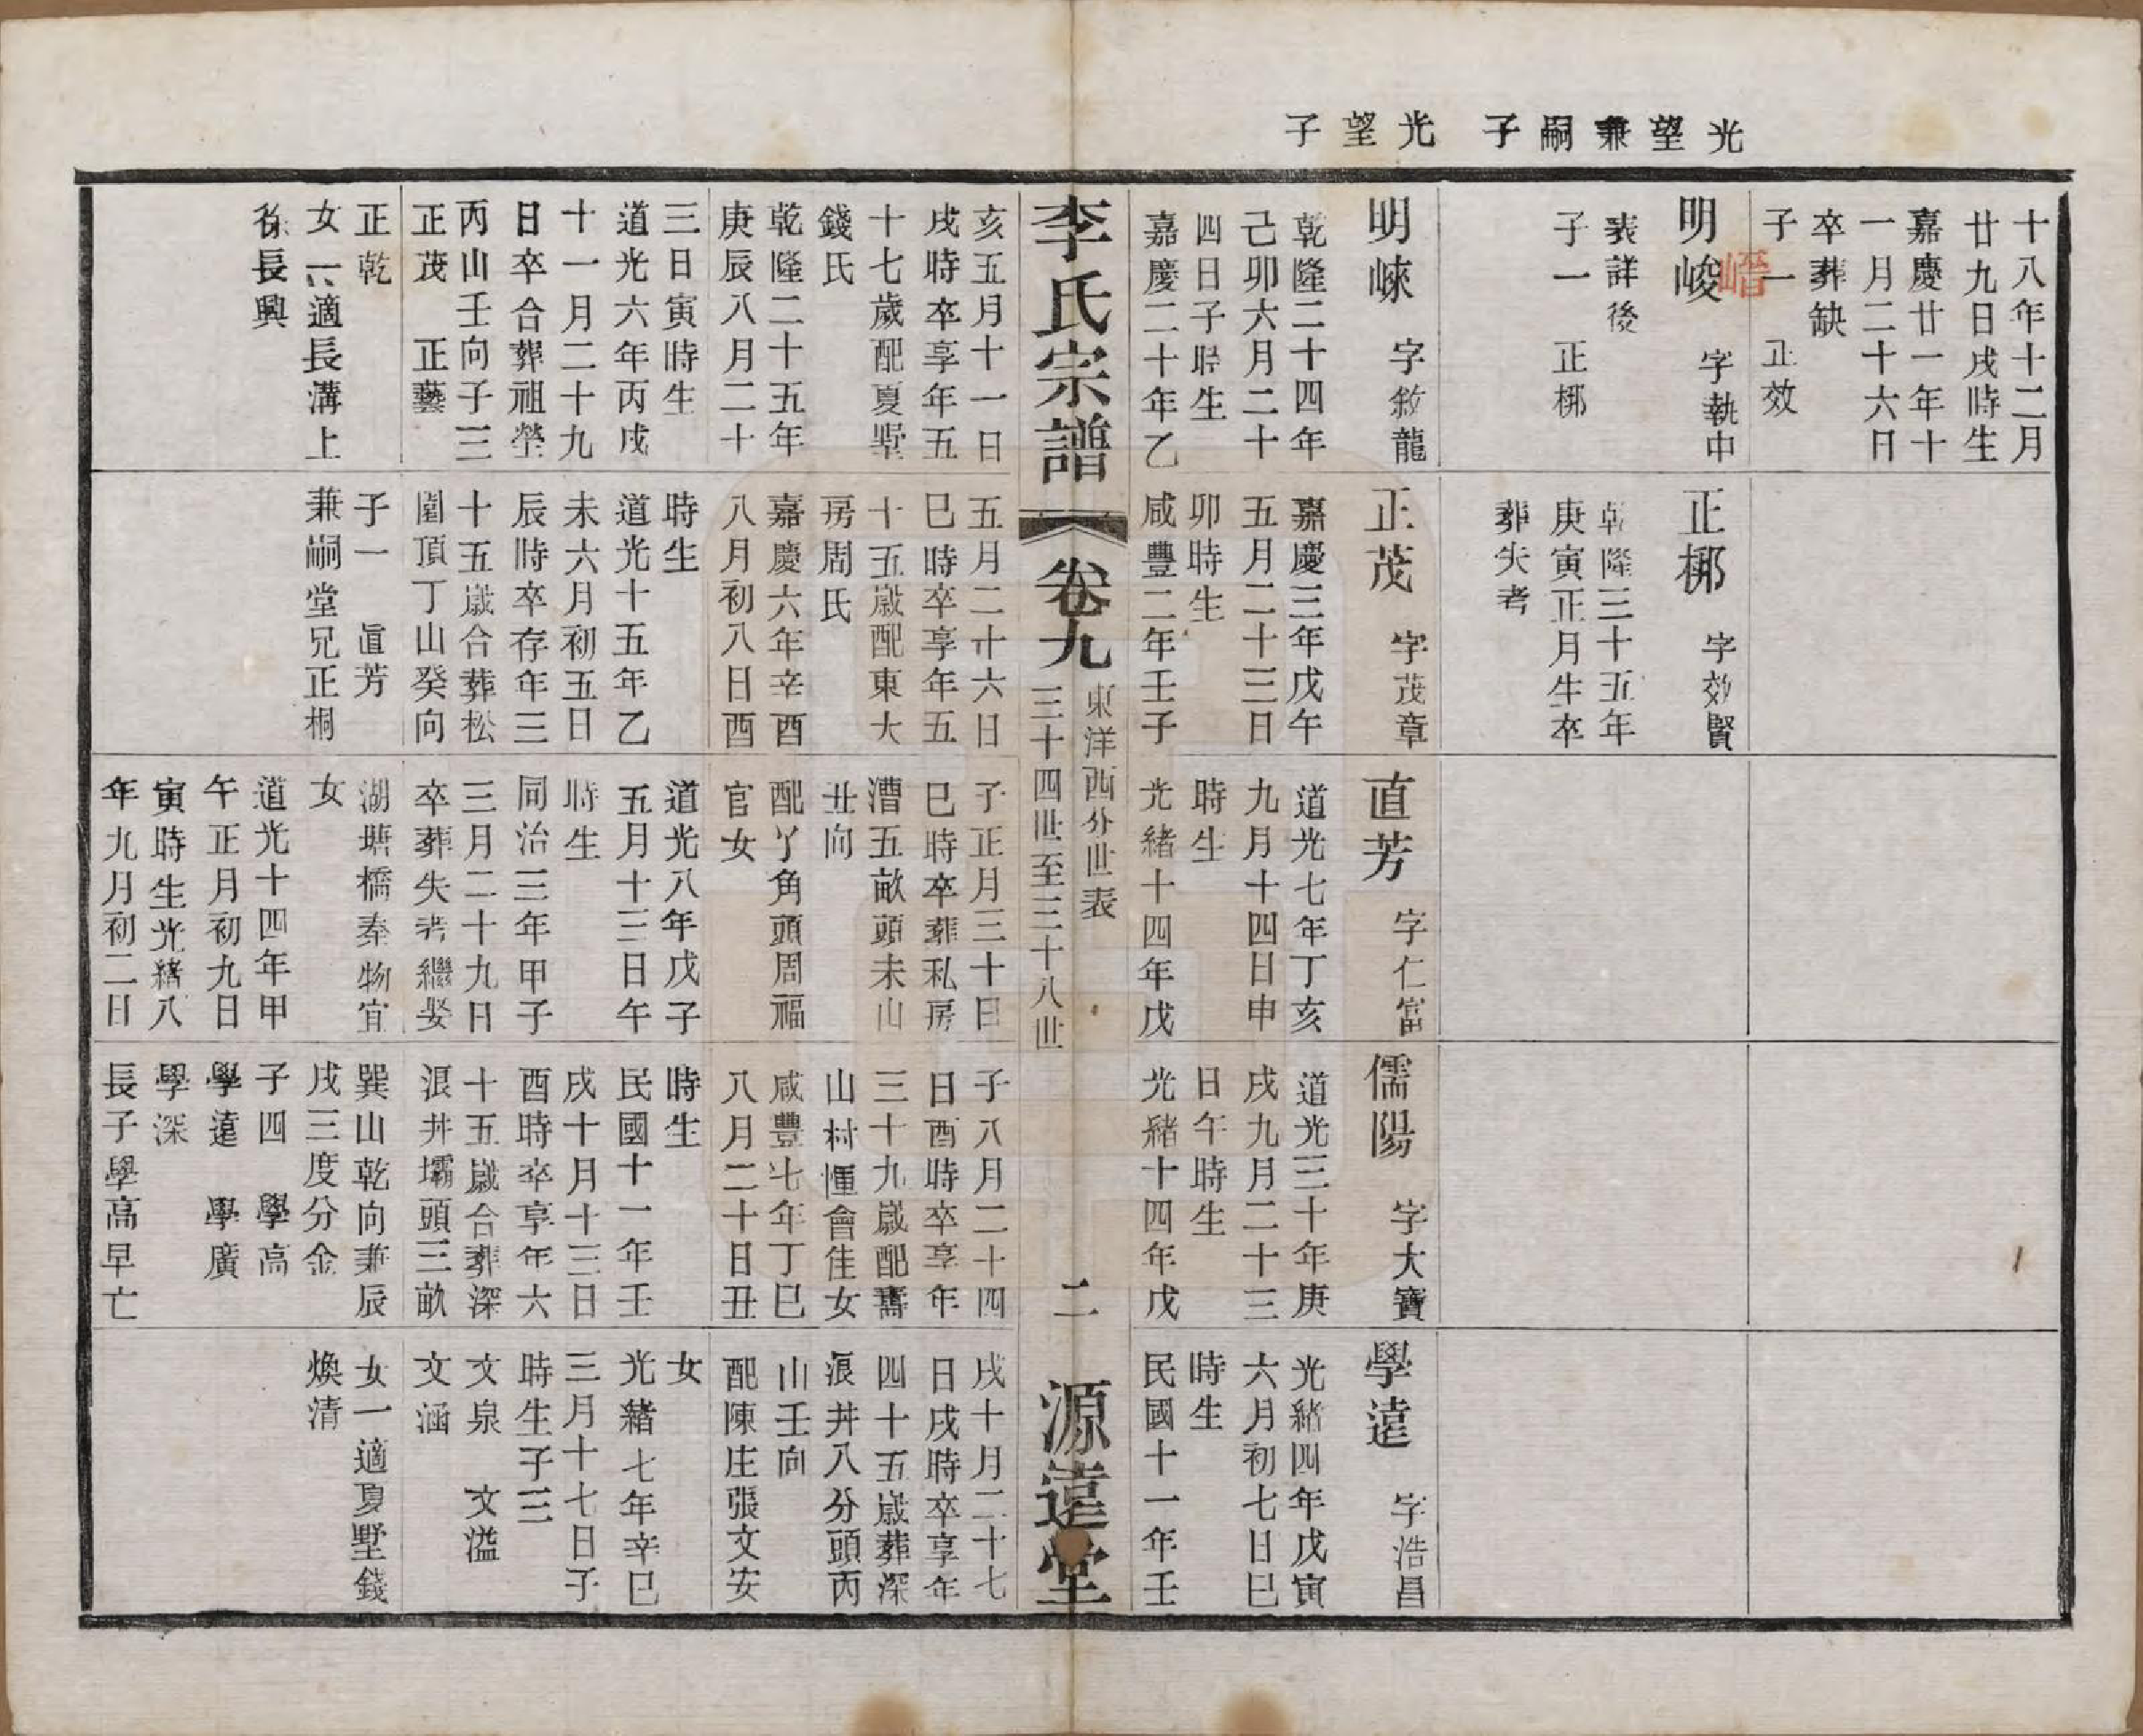 光望兼嗣子
光望子
十八年十二月
廿九日戌時生
嘉慶廿一年十
一月二十六日
卒葬缺
子一 正效
明㟮 字執中
表詳後
子一 正梛
明崍 字敘龍
乾隆二十四年
己卯六月二十
四日子時生
嘉慶二十年乙
正梛 字效賢
乾隆三十五年
庚寅正月生卒
葬失考
正茂 字茂章
嘉慶三年戊午
五月二十三日
卯時生
咸豐二年壬子
直芳 字仁富
道光七年丁亥
九月十四日申
時生
光緒十四年戊
儒陽 字大寶
道光三十年庚
戌九月二十三
日午時生
光緒十四年戊
學遠 字浩昌
光緒四年戊寅
六月初七日巳
時生
民國十一年壬
李氏宗譜 卷九
東洋西分世表
三十四世至三十八世
二
源遠堂
亥五月十一日
戌時卒享年五
十七歲配夏墅
錢氏
乾隆二十五年
庚辰八月二十
三日寅時生
道光六年丙戌
十一月二十九
日卒合葬祖塋
丙山壬向子三
正茂 正藝
正乾
女一適長溝上
徐長興
五月二十六日
巳時卒享年五
十五歲配東大
房周氏
嘉慶六年辛酉
八月初八日酉
時生
道光十五年乙
未六月初五日
辰時卒存年三
十五歲合葬松
園頂丁山癸向
子一 直芳
兼嗣堂兄正桐
子正月三十日
巳時卒葬私房
漕五畝頭未山
丑向
配丫角頭周福
官女
道光八年戊子
五月十三日午
時生
同治三年甲子
三月二十九日
卒葬失考繼娶
湖塘橋秦物宜
女
道光十四年甲
午正月初九日
寅時生光緒八
年九月初二日
子八月二十四
日酉時卒享年
三十九歲配壽
山村惲會隹女
咸豐七年丁巳
八月二十日丑
時生
民國十一年壬
戌十月十三日
酉時卒享年六
十五歲合葬深
浪井壩頭三畝
巽山乾向兼辰
戌三度分金
子四 學高
學遠 學廣
學深
長子學高早亡
戌十月二十七
日戌時卒享年
四十五歲葬深
浪井八分頭丙
山壬向
配陳庄張文安
女
光緒七年辛巳
三月十七日子
時生子三
文泉 文溢
文涵
女一適夏墅錢
煥清